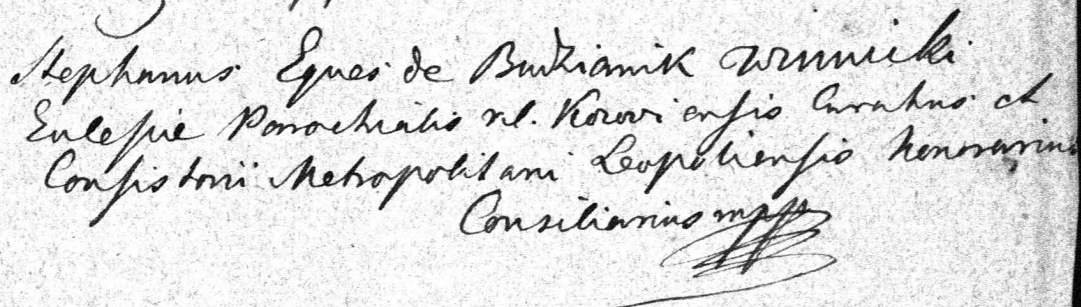 Stephanus Eques de Budzianik Winnicki
Eclesiæ Parochialis r. l. Korowiensis Curatus et
Consistorii Metropolitani Leopoliensis honorarius
Consiliarius mpp